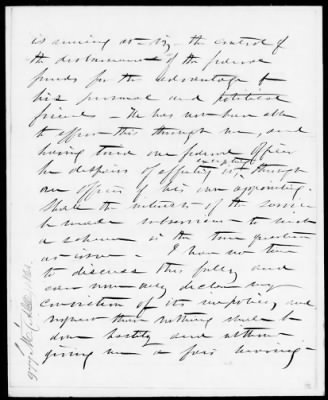 is aiming at - viz. the control of
the disbursement of the federal
funds for the advantage of
his personal and political
friends - He has not been able
to effect this through me, and
having tried one federal officer
he despairs of effecting it, except through
an officer of his own appointing.
Shall the interests of the service
be made subservient to such
a scheme is the true question
at issue - I have not time
to discuss this fully and
can now only declare my
conviction of its impolicy, and
request that nothing shall be
done hastily and without
giving me a fair hearing -